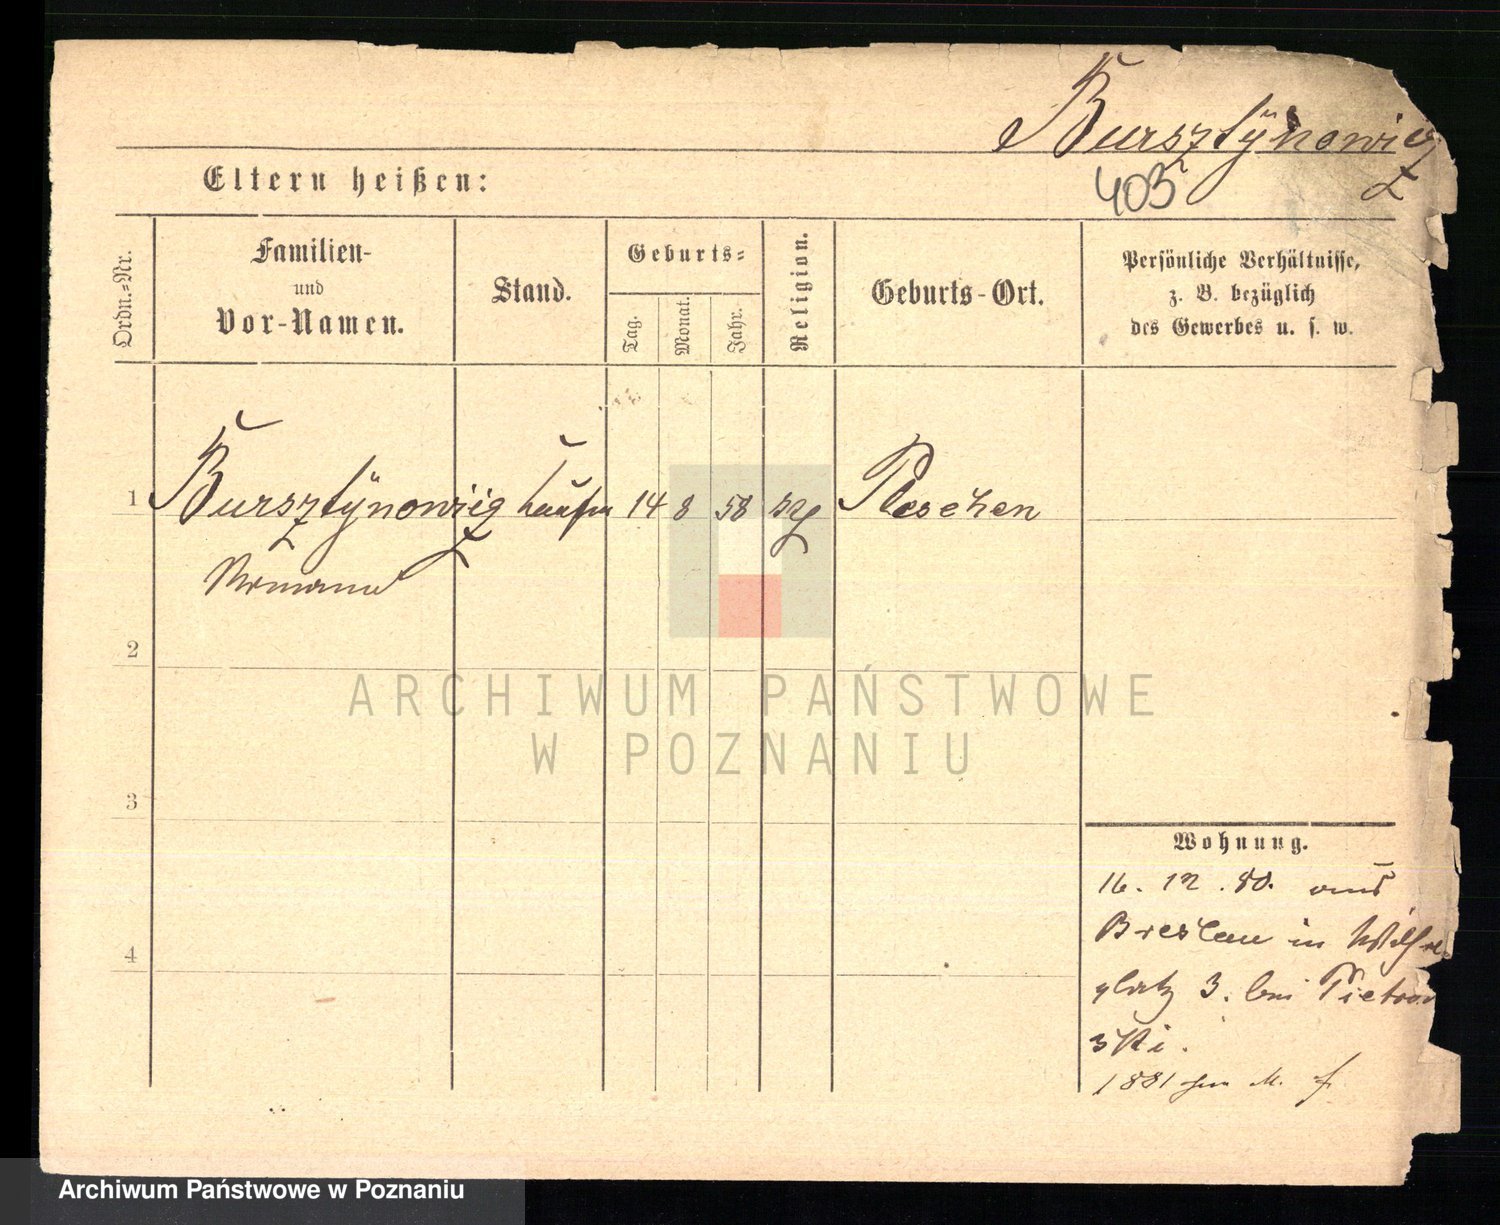 Bursztÿnowicz
403
Eltern heißen:
Ordn.-Nr.
Familien-
und
Vor-Namen.
Stand.
Geburts-
Tag.
Monat.
Jahr.
Religion.
Geburts-Ort.
Persönliche Verhältnisse,
z. B. bezüglich
des Gewerbes u. s. w.
1 Bursztÿnowicz 14 8 58 Pleschen
2
3
4
Wohnung.
16. 12. 80. aus
Breslau in Wilh
platz 3. bei Pietrow
ski.
1881
ARCHIWUM PAŃSTWOWE
W POZNANIU
Archiwum Państwowe w Poznaniu